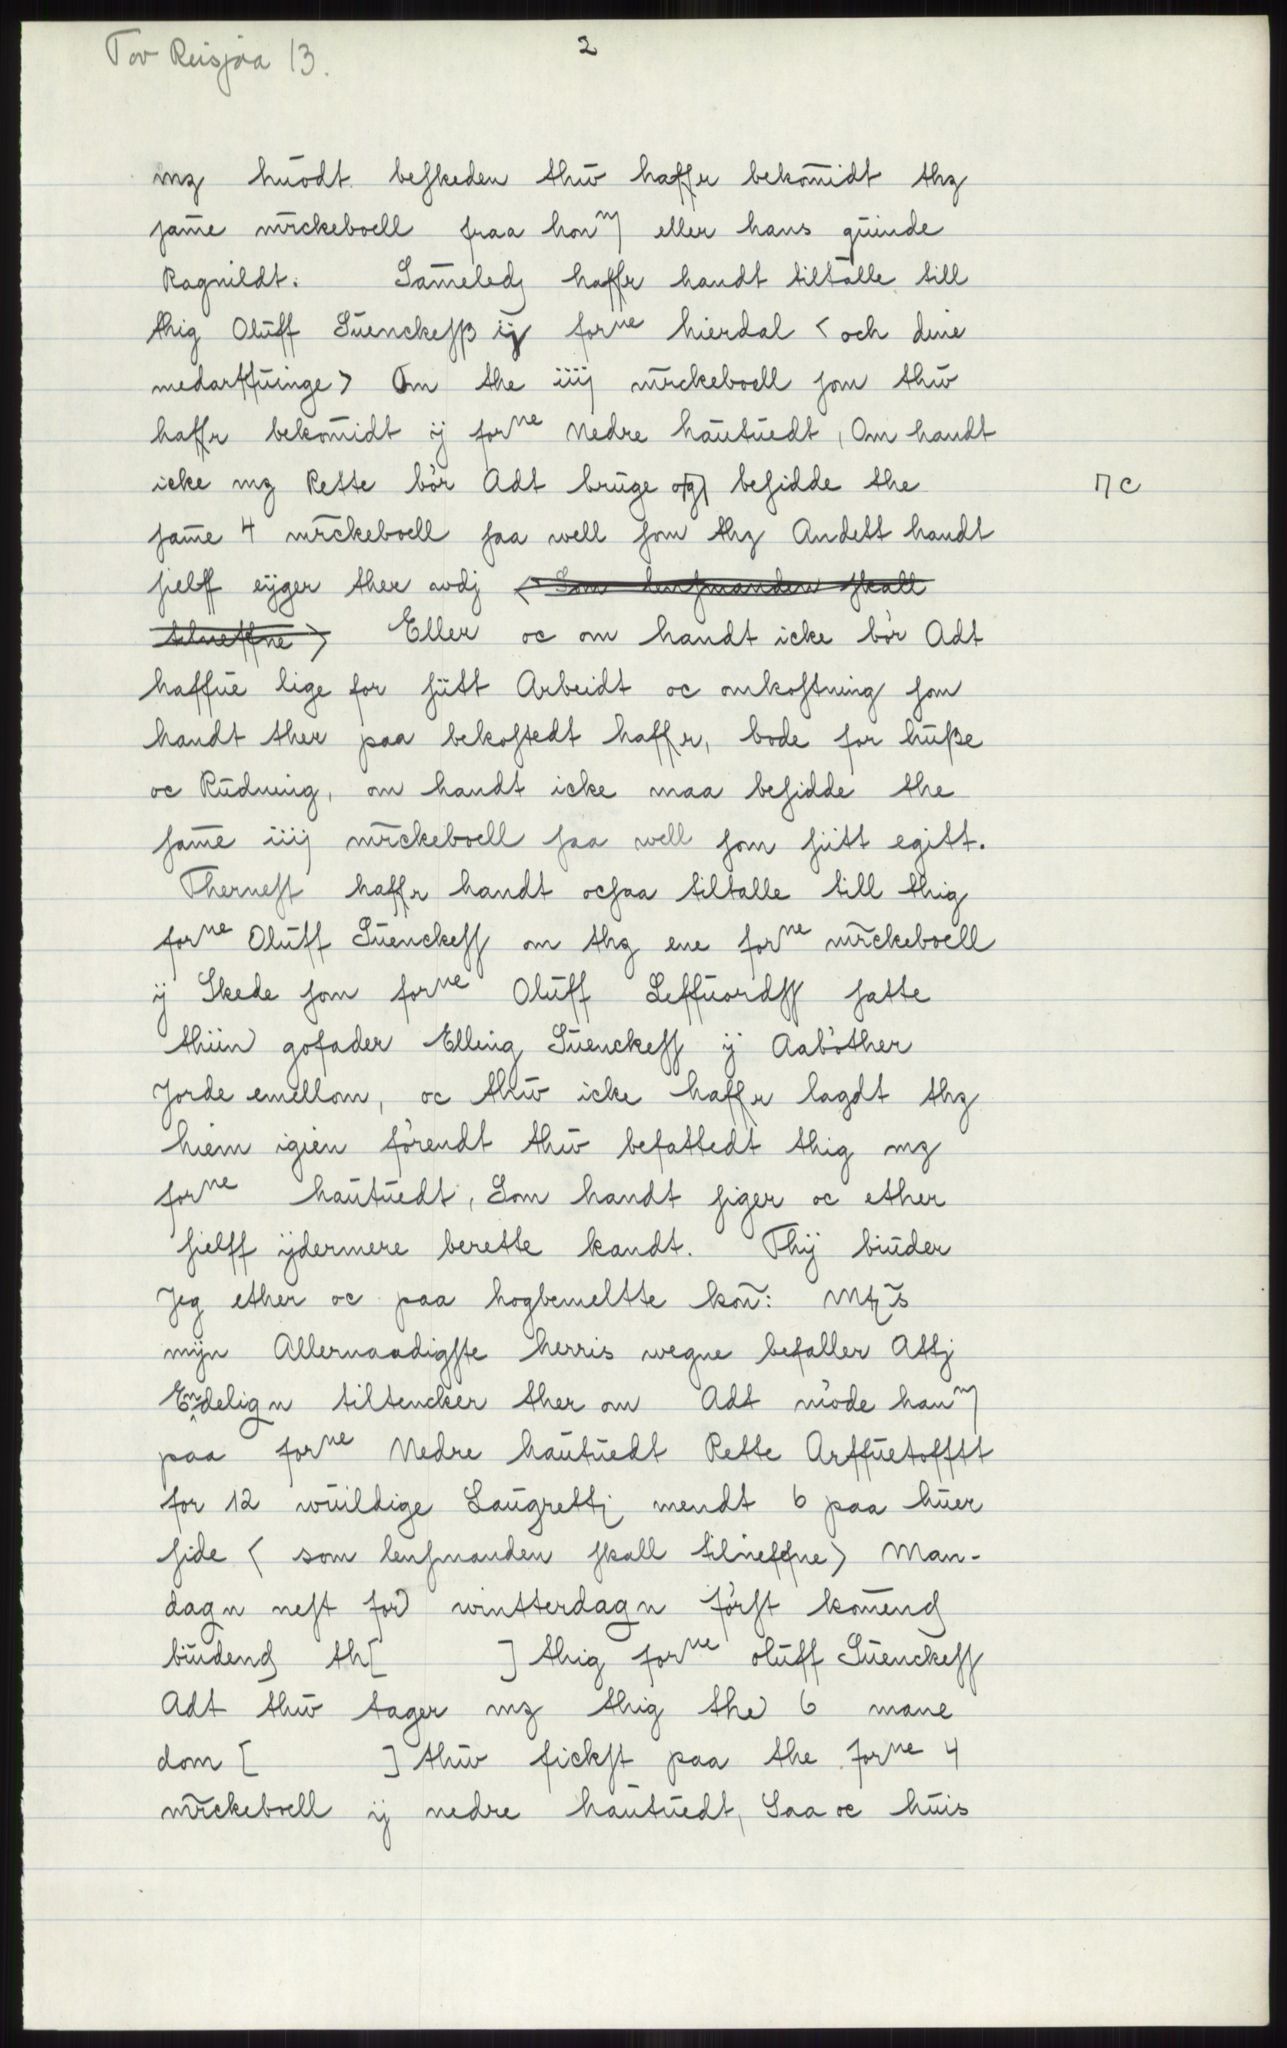 Tov Reisjåa 13.
2
mz huodt beskeden thw haffr bekom̄idt thz
sam̄e mr̄ckeboell fraa honm eller hans quinde
Ragnildt. Sam̄eledz haffr handt tiltalle till
thig Oluff Suenckeſß ij forne hierdal < och dine
medarffuinge> Om the iiij mr̄ckeboell som thw
haffr bekom̄idt ij forne Nedre hautuedt, Om handt
icke mz Rette bør Adt bruge og besidde the ⁊ c
sam̄e 4 mr̄ckeboell saa well som thz Andett handt
sielff eyger ther wdj <Som lensmanden skall
tilneffne> Eller oc om handt icke bør Adt
haffue lige for siitt Arbeidt oc omkostning som
handt ther paa bekostedt haffr, bode for huße
oc Rudning, om handt icke maa besidde the
sam̄e iiij mr̄ckeboell saa well som siitt egitt.
Thernest haffr handt ocsaa tiltalle till thig
forne Oluff Suenckeſſ om thz ene forne mr̄ckeboell
ij Skede som forne Oluff Leffuordſſ satte
thiin gofader Elling Suenckeſſ ij Aabøther
Jorde emellom, oc thw icke haffr lagdt thz
hiem igien førendt thw befattedt thig mz
forne hautuedt, Som handt siger oc ether
sielff ijdermere berette kandt. Thij biuder
Jeg ether oc paa hogbemeltte kon̄: Mtz̄
mijn Allernaadigste herris wegne befaller Attj
Endelign tiltencker ther om Adt møde hanm
paa forne Nedre hautuedt Rette Arffuetofftt
for 12 wuildige Laugrettz mendt 6 paa huer
side < som lensmanden skall tilneffne> Man-
dagn nest for wintterdagn først kom̄endz
biudendz th[ ] thig forne oluff Suenckeſſ
Adt thw tager mz thig the 6 mane
dom [ ] thw fickst paa the forne 4
mr̄ckeboell ij nedre hautuedt, Saa oc huis